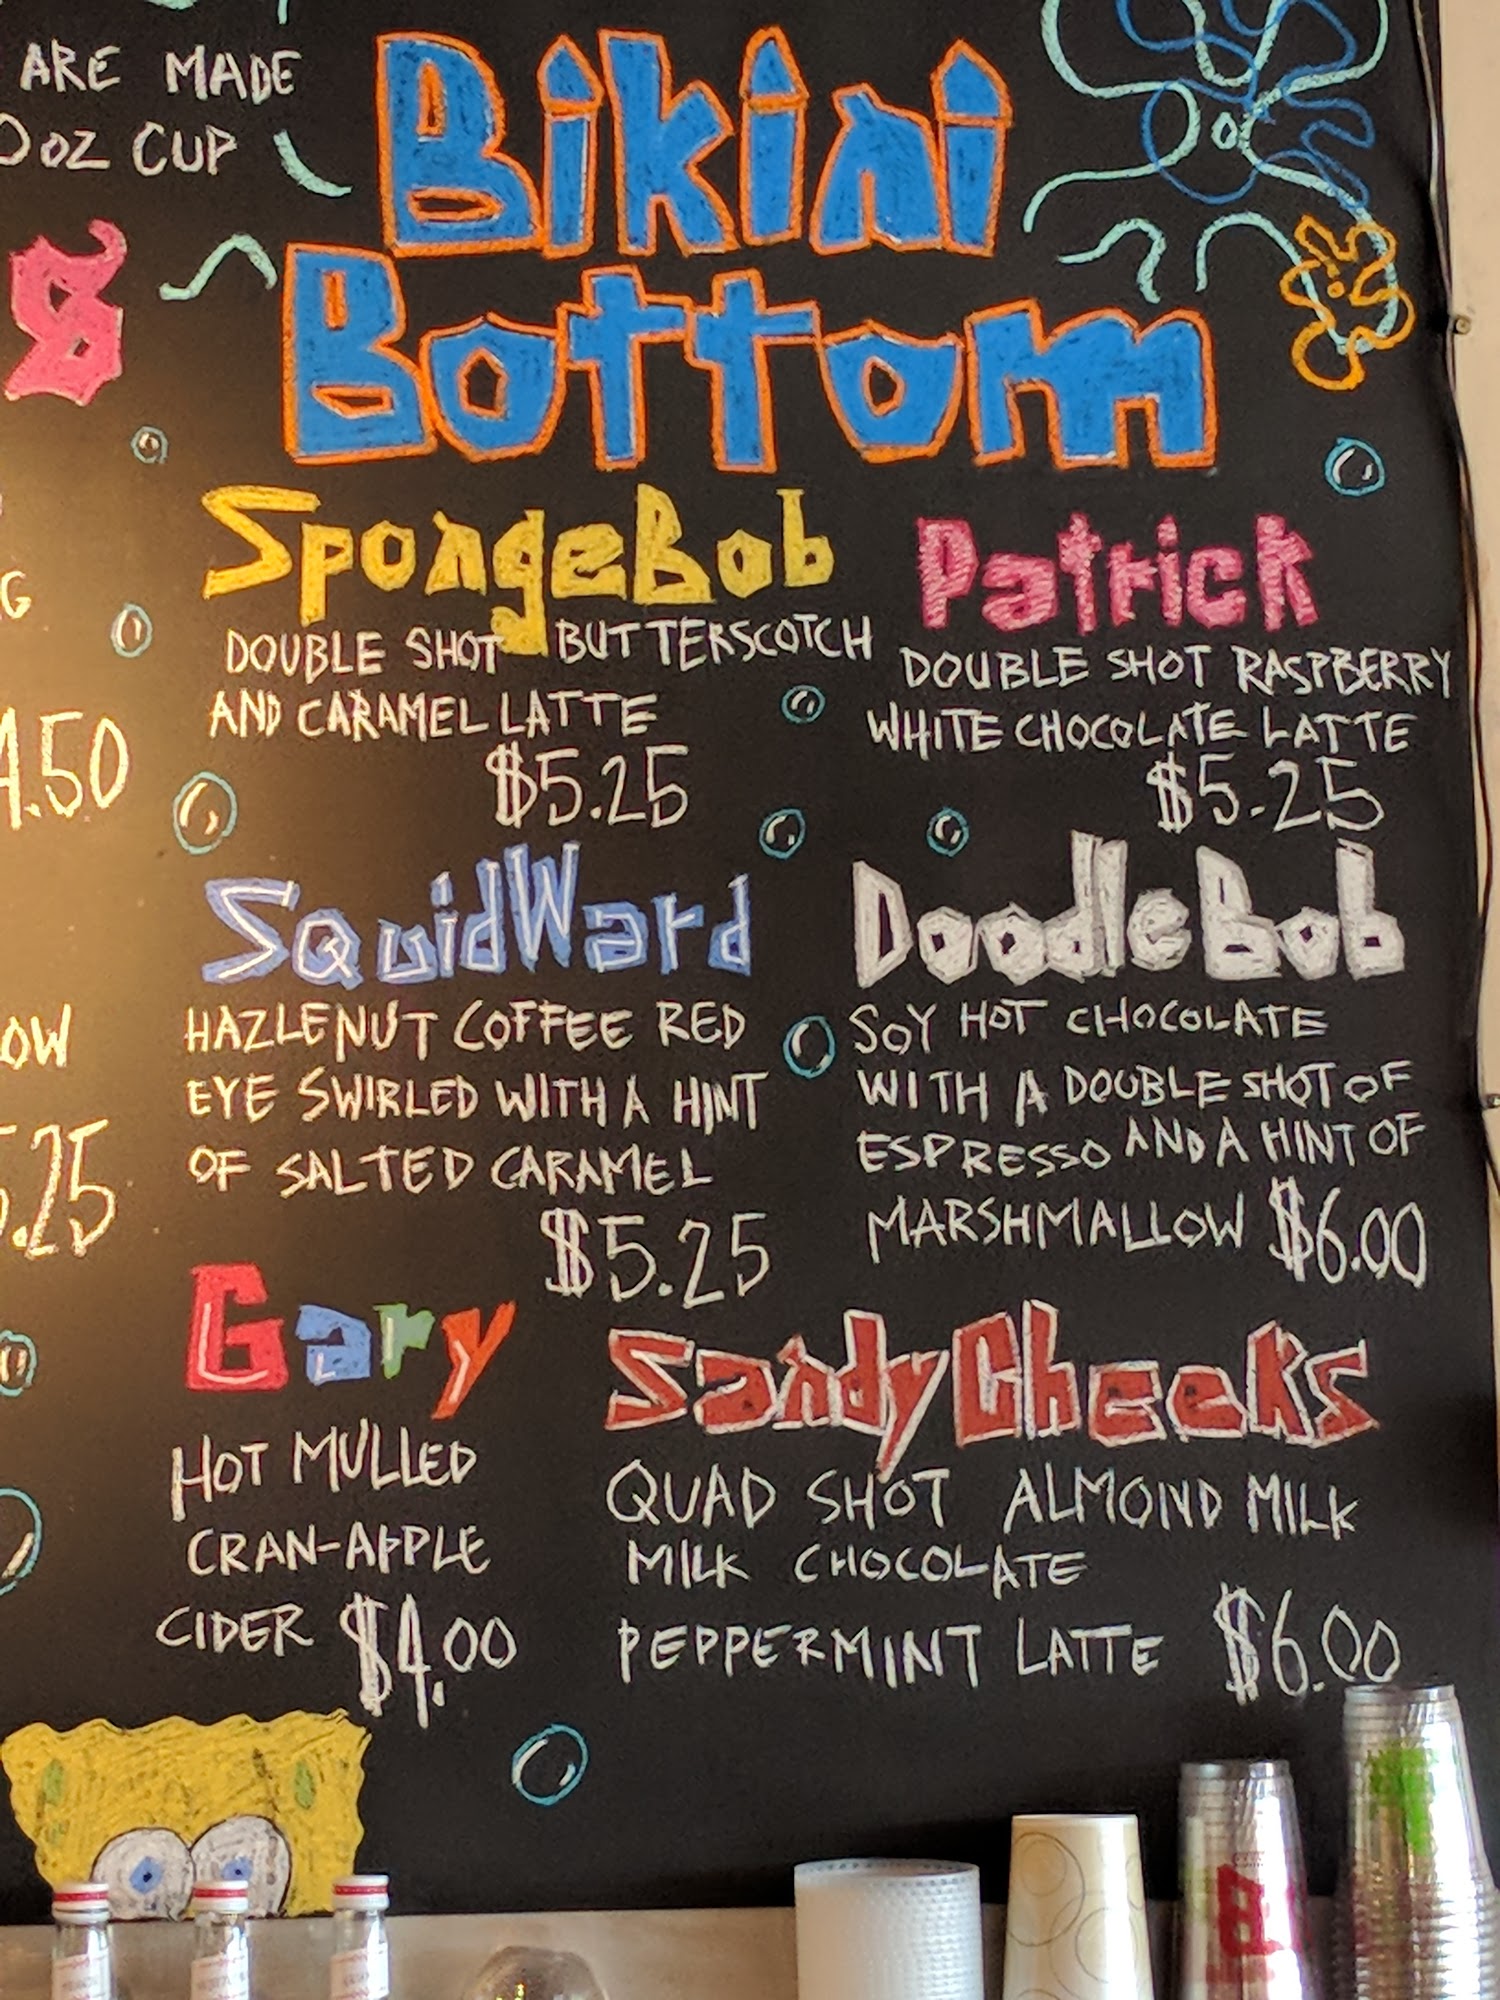 ARE MADE
OZ CUP
Bikini
Bottom
S
SpongeBob
DOUBLE SHOT BUTTERSCOTCH
AND CARAMEL LATTE
$5.25
Patrick
DOUBLE SHOT RASPBERRY
WHITE CHOCOLATE LATTE
$5.25
G
4.50
SquidWard
HAZLENUT COFFEE RED
EYE SWIRLED WITH A HINT
OF SALTED CARAMEL
$5.25
DoodleBob
SOY HOT CHOCOLATE
WITH A DOUBLE SHOT OF
ESPRESSO AND A HINT OF
MARSHMALLOW $6.00
OW
5.25
Gary
HOT MULLED
CRAN-APPLE
CIDER $4.00
Sandy Cheeks
QUAD SHOT ALMOND MILK
MILK CHOCOLATE
PEPPERMINT LATTE $6.00